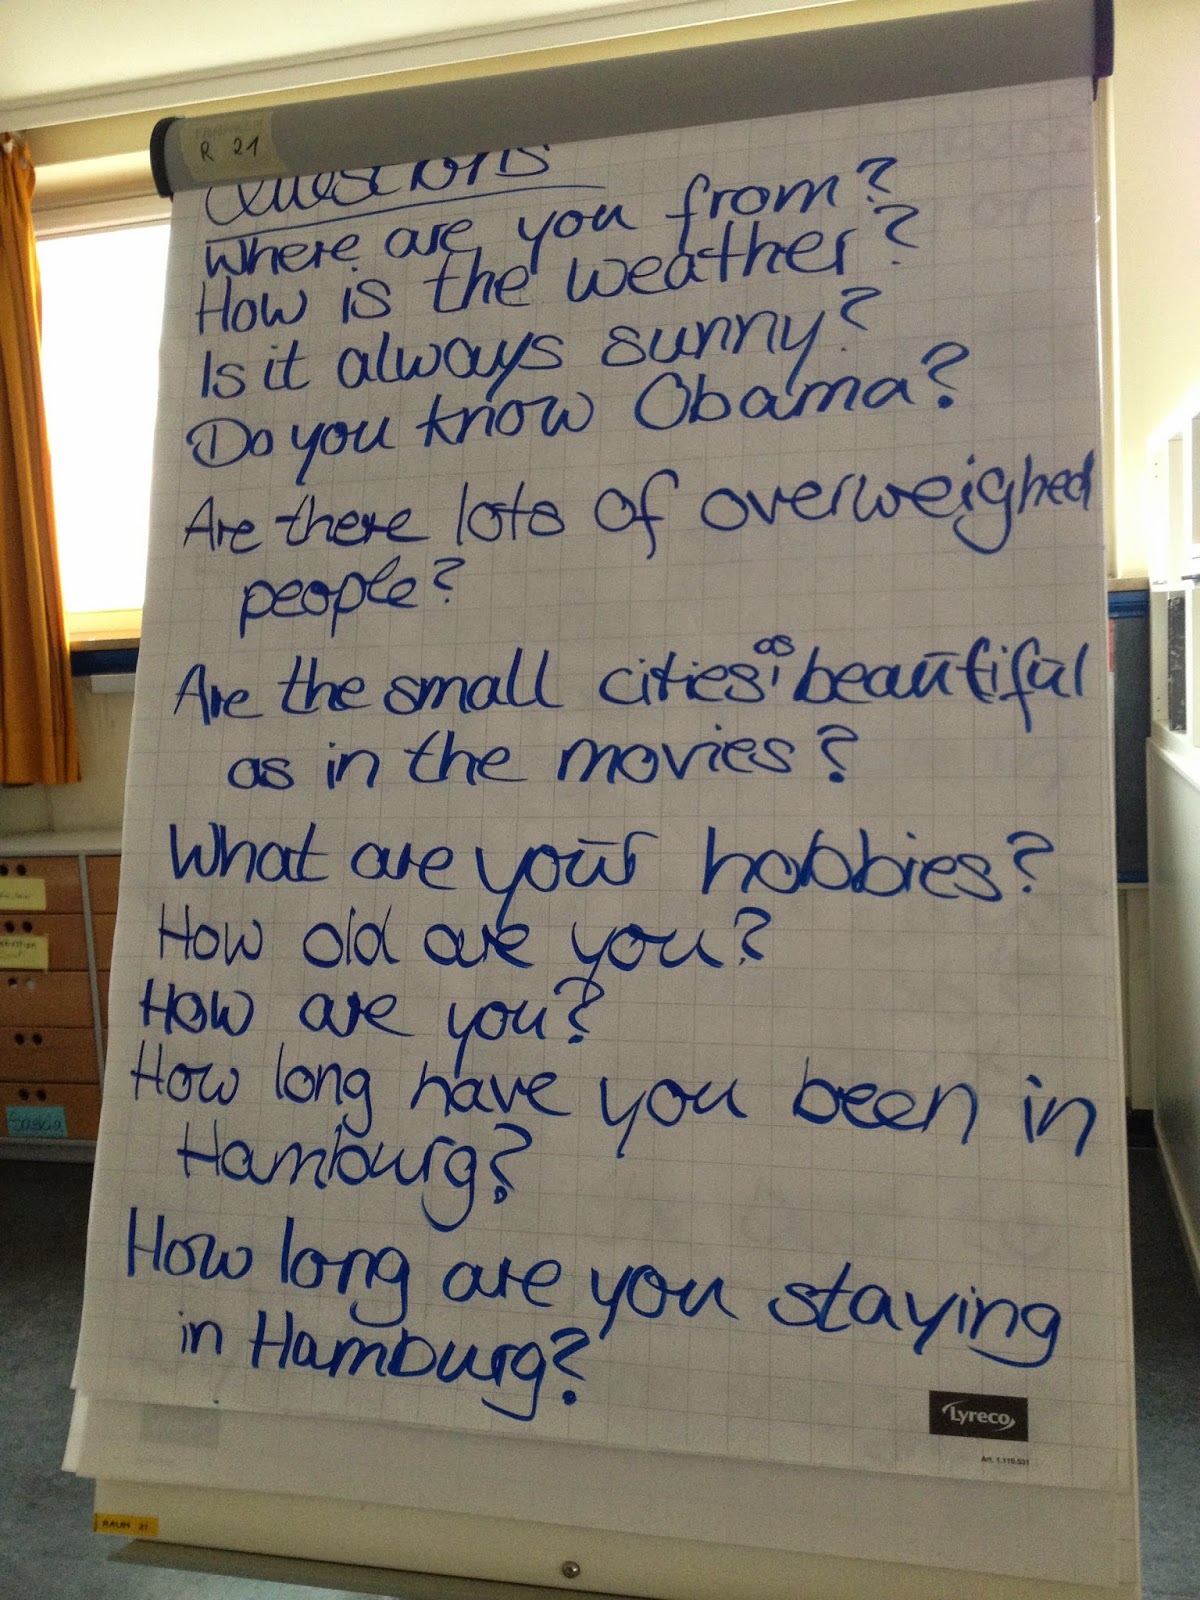 R 21
Questions
Where are you from?
How is the weather?
Is it always sunny?
Do you know Obama?
Are there lots of overweighed
people?
Are the small cities as beautiful
as in the movies?
What are your hobbies?
How old are you?
How are you?
How long have you been in
Hamburg?
How long are you staying
in Hamburg?
Lyreco
Art. 1.110.531
RAUM 21
Saskia